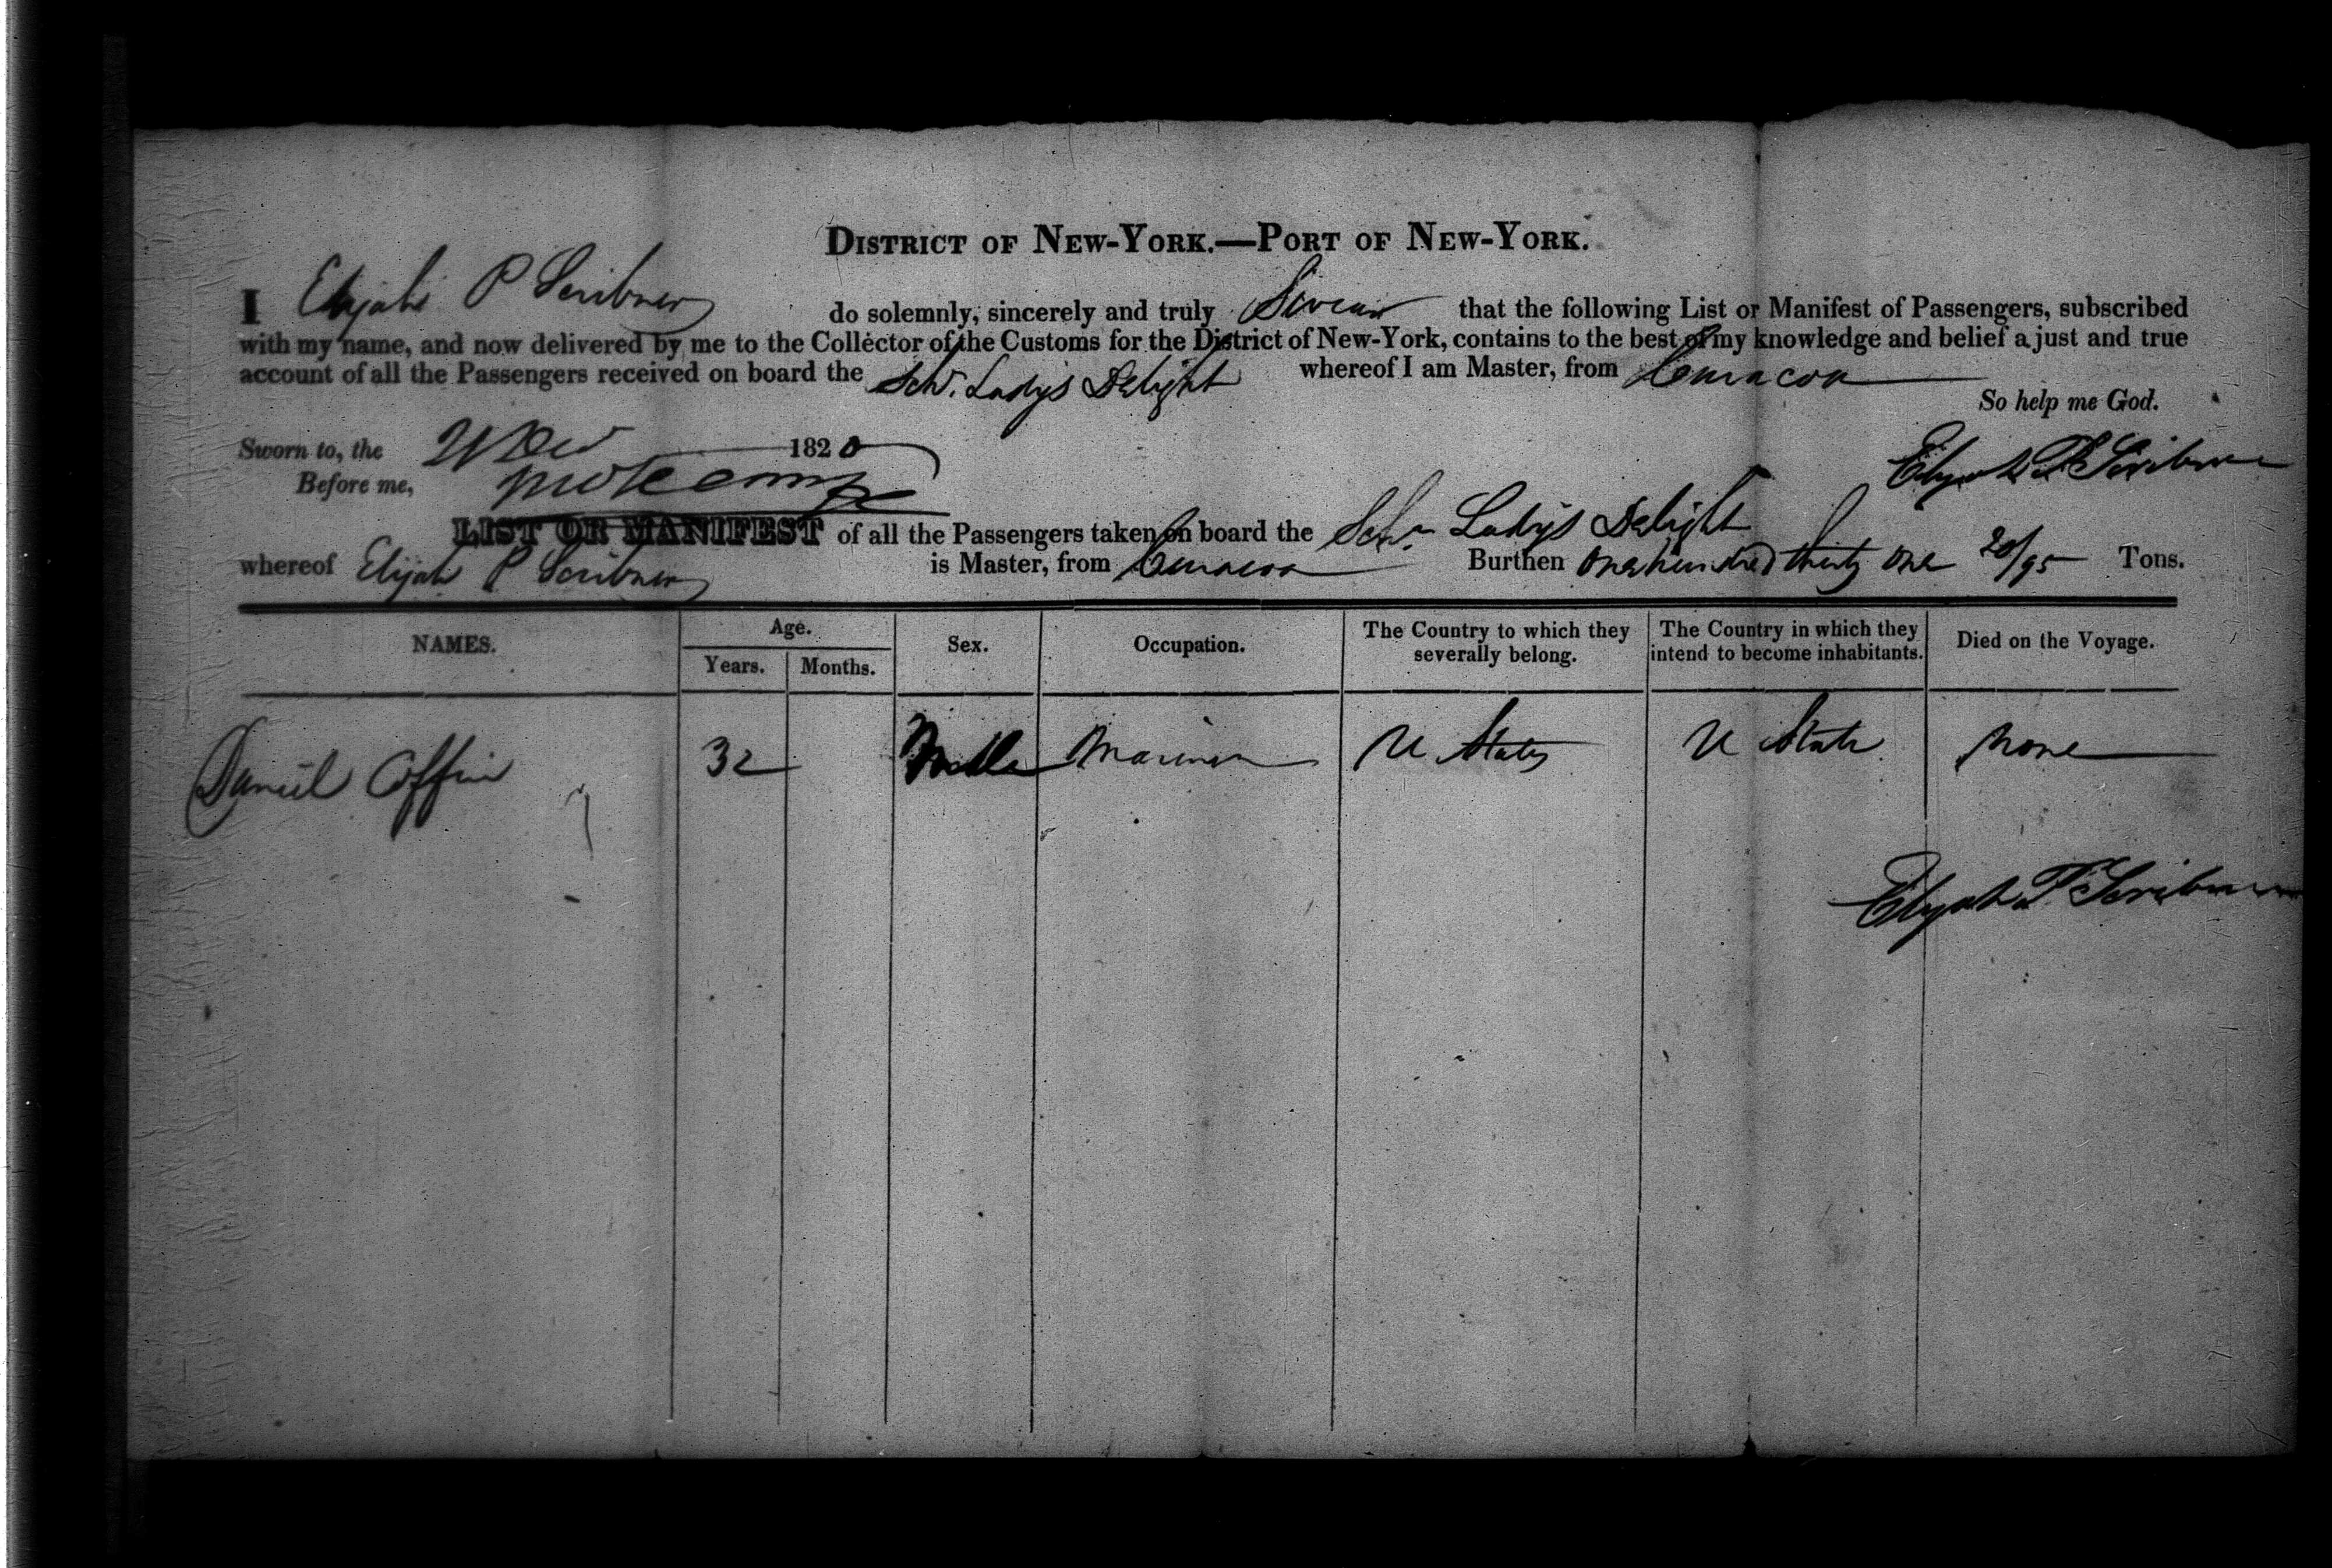 DISTRICT OF NEW-YORK.—PORT OF NEW-YORK.
I Elijah P Scribner do solemnly, sincerely and truly Swear that the following List or Manifest of Passengers, subscribed
with my name, and now delivered by me to the Collector of the Customs for the District of New-York, contains to the best of my knowledge and belief a just and true
account of all the Passengers received on board the Schr. Ladys Delight whereof I am Master, from Curacoa
So help me God.
Sworn to, the Dec 1820
Before me, Elijah P Scribner
LIST OR MANIFEST of all the Passengers taken on board the Schr. Ladys Delight
whereof Elijah P Scribner is Master, from Curacoa Burthen One hundred thirty one 20/95 Tons.
NAMES. Age. Years. Months. Sex. Occupation. The Country to which they severally belong. The Country in which they intend to become inhabitants. Died on the Voyage.
Daniel Coffin 32 Male Mariner U States U State none
Elijah P Scribner